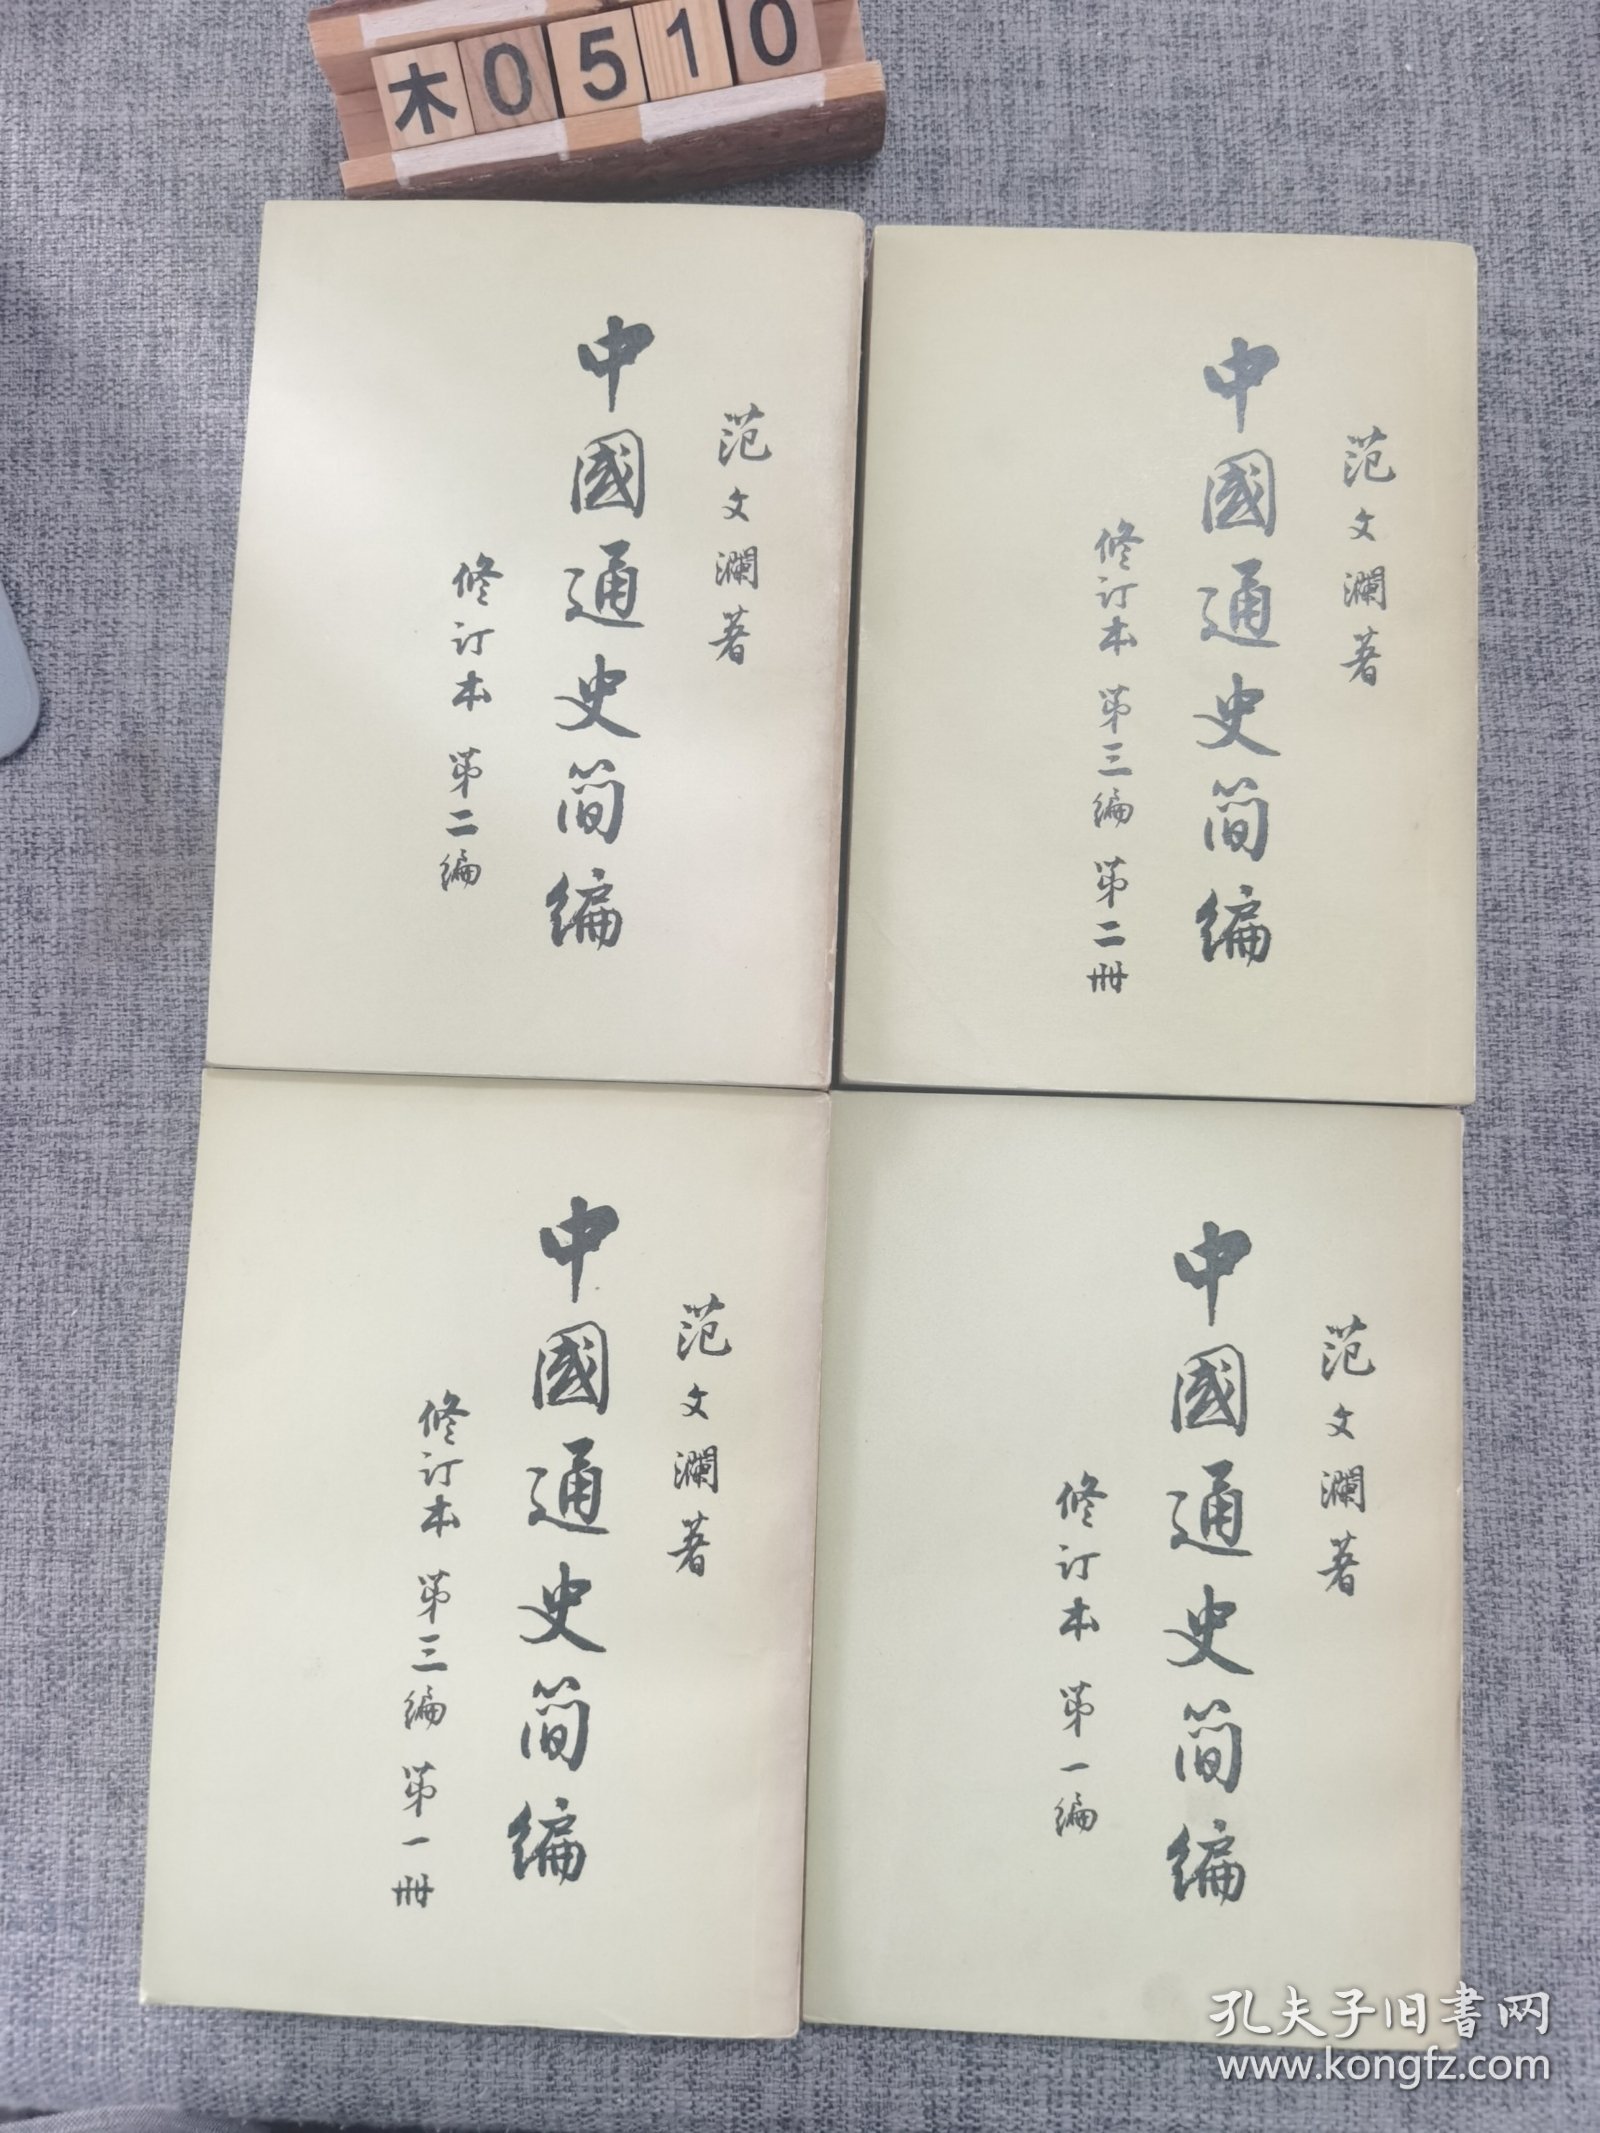 木0510
范文瀾著
中國通史简编
修订本 第二编
范文瀾著
中國通史简编
修订本 第三编 第二册
范文瀾著
中國通史简编
修订本 第三编 第一册
范文瀾著
中國通史简编
修订本 第一编
孔夫子旧書网
www.kongfz.com